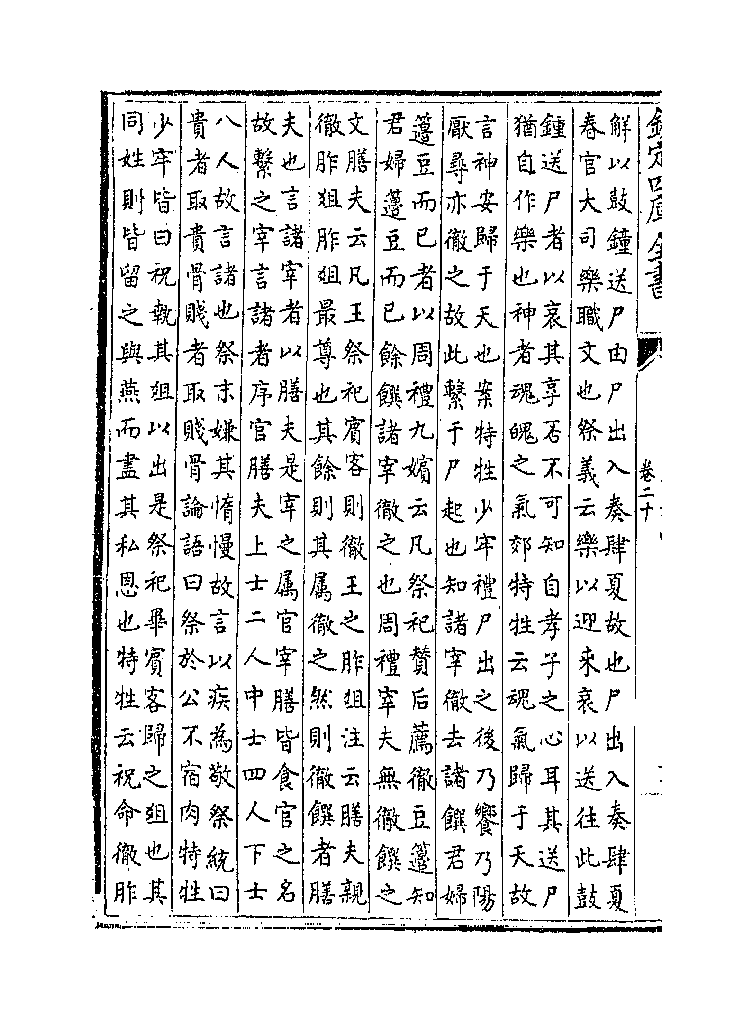 欽定四庫全書
卷二十
解以鼓鐘送尸由尸出入奏肆夏故也尸出入奏肆夏
春官大司樂職文也祭義云樂以迎來哀以送往此鼓
鍾送尸者以哀其享否不可知自孝子之心耳其送尸
猶自作樂也神者魂魄之氣郊特牲云魂氣歸于天故
言神安歸于天也案特牲少牢禮尸出之後乃饗乃陽
厭尋亦徹之故此繫于尸起也知諸宰徹去諸饌君婦
籩豆而已者以周禮九嬪云凡祭祀贊后薦徹豆籩知
君婦籩豆而已餘饌諸宰徹之也周禮宰夫無徹饌之
文膳夫云凡王祭祀賓客則徹王之胙俎注云膳夫親
徹胙俎胙俎最尊也其餘則其属徹之然則徹饌者膳
夫也言諸宰者以膳夫是宰之属官宰膳皆食官之名
故繫之宰言諸者序官膳夫上士二人中士四人下士
八人故言諸也祭末嫌其惰慢故言以疾為敬祭統曰
貴者取貴骨賤者取賤骨論語曰祭於公不宿肉特牲
少牢皆曰祝執其俎以出是祭祀畢賓客歸之俎也其
同姓則皆留之與燕而盡其私恩也特牲云祝命徹胙